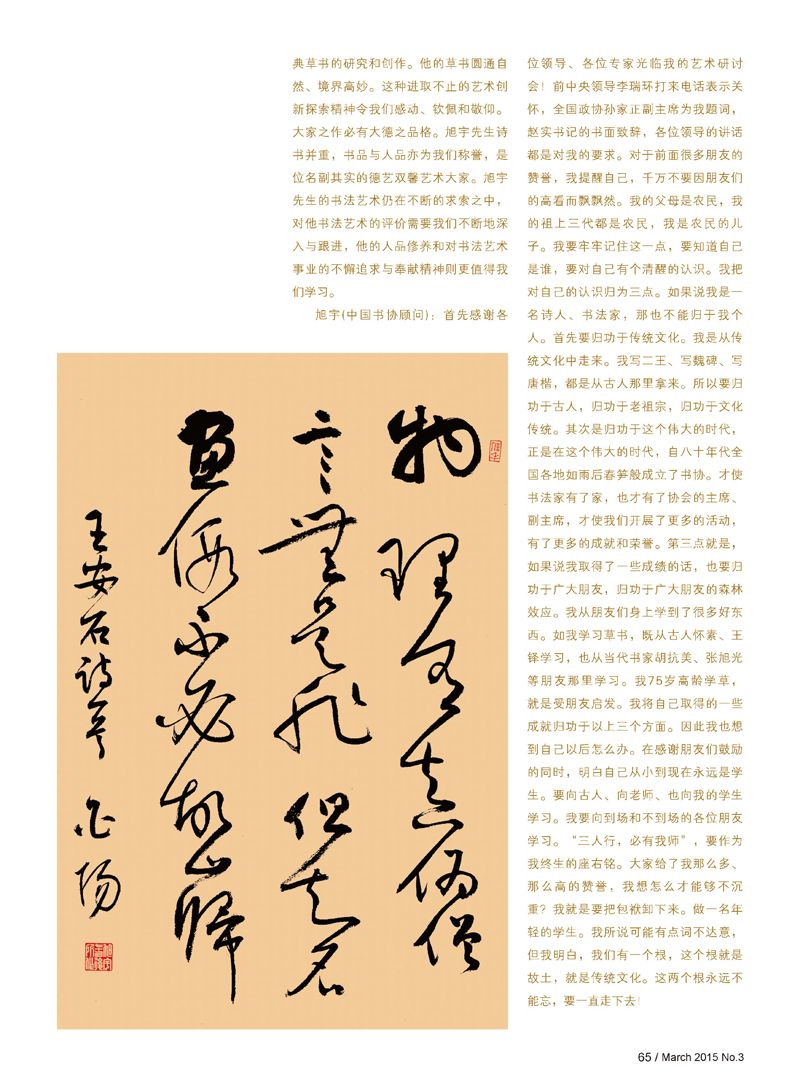 典草书的研究和创作。他的草书圆通自
然、境界高妙。这种进取不止的艺术创
新探索精神令我们感动、钦佩和敬仰。
大家之作必有大德之品格。旭宇先生诗
书并重，书品与人品亦为我们称誉，是
位名副其实的德艺双馨艺术大家。旭宇
先生的书法艺术仍在不断的求索之中，
对他书法艺术的评价需要我们不断地深
入与跟进，他的人品修养和对书法艺术
事业的不懈追求与奉献精神则更值得我
们学习。
旭宇(中国书协顾问)：首先感谢各
物理有真偽僧
言無是非但知名
盡假不必故山歸
王安石詩一首
位领导、各位专家光临我的艺术研讨
会！前中央领导李瑞环打来电话表示关
怀，全国政协孙家正副主席为我题词，
赵实书记的书面致辞，各位领导的讲话
都是对我的要求。对于前面很多朋友的
赞誉，我提醒自己，千万不要因朋友们
的高看而飘飘然。我的父母是农民，我
的祖上三代都是农民，我是农民的儿
子。我要牢牢记住这一点，要知道自己
是谁，要对自己有个清醒的认识。我把
对自己的认识归为三点。如果说我是一
名诗人、书法家，那也不能归于我个
人。首先要归功于传统文化。我是从传
统文化中走来。我写二王、写魏碑、写
唐楷，都是从古人那里拿来。所以要归
功于古人，归功于老祖宗，归功于文化
传统。其次是归功于这个伟大的时代，
正是在这个伟大的时代，自八十年代全
国各地如雨后春笋般成立了书协。才使
书法家有了家，也才有了协会的主席、
副主席，才使我们开展了更多的活动，
有了更多的成就和荣誉。第三点就是，
如果说我取得了一些成绩的话，也要归
功于广大朋友，归功于广大朋友的森林
效应。我从朋友们身上学到了很多好东
西。如我学习草书，既从古人怀素、王
铎学习，也从当代书家胡抗美、张旭光
等朋友那里学习。我75岁高龄学草，
就是受朋友启发。我将自己取得的一些
成就归功于以上三个方面。因此我也想
到自己以后怎么办。在感谢朋友们鼓励
的同时，明白自己从小到现在永远是学
生。要向古人、向老师、也向我的学生
学习。我要向到场和不到场的各位朋友
学习。“三人行，必有我师”，要作为
我终生的座右铭。大家给了我那么多、
那么高的赞誉，我想怎么才能够不沉
重？我就是要把包袱卸下来。做一名年
轻的学生。我所说可能有点词不达意，
但我明白，我们有一个根，这个根就是
故土，就是传统文化。这两个根永远不
能忘，要一直走下去！
65 / March 2015 No.3